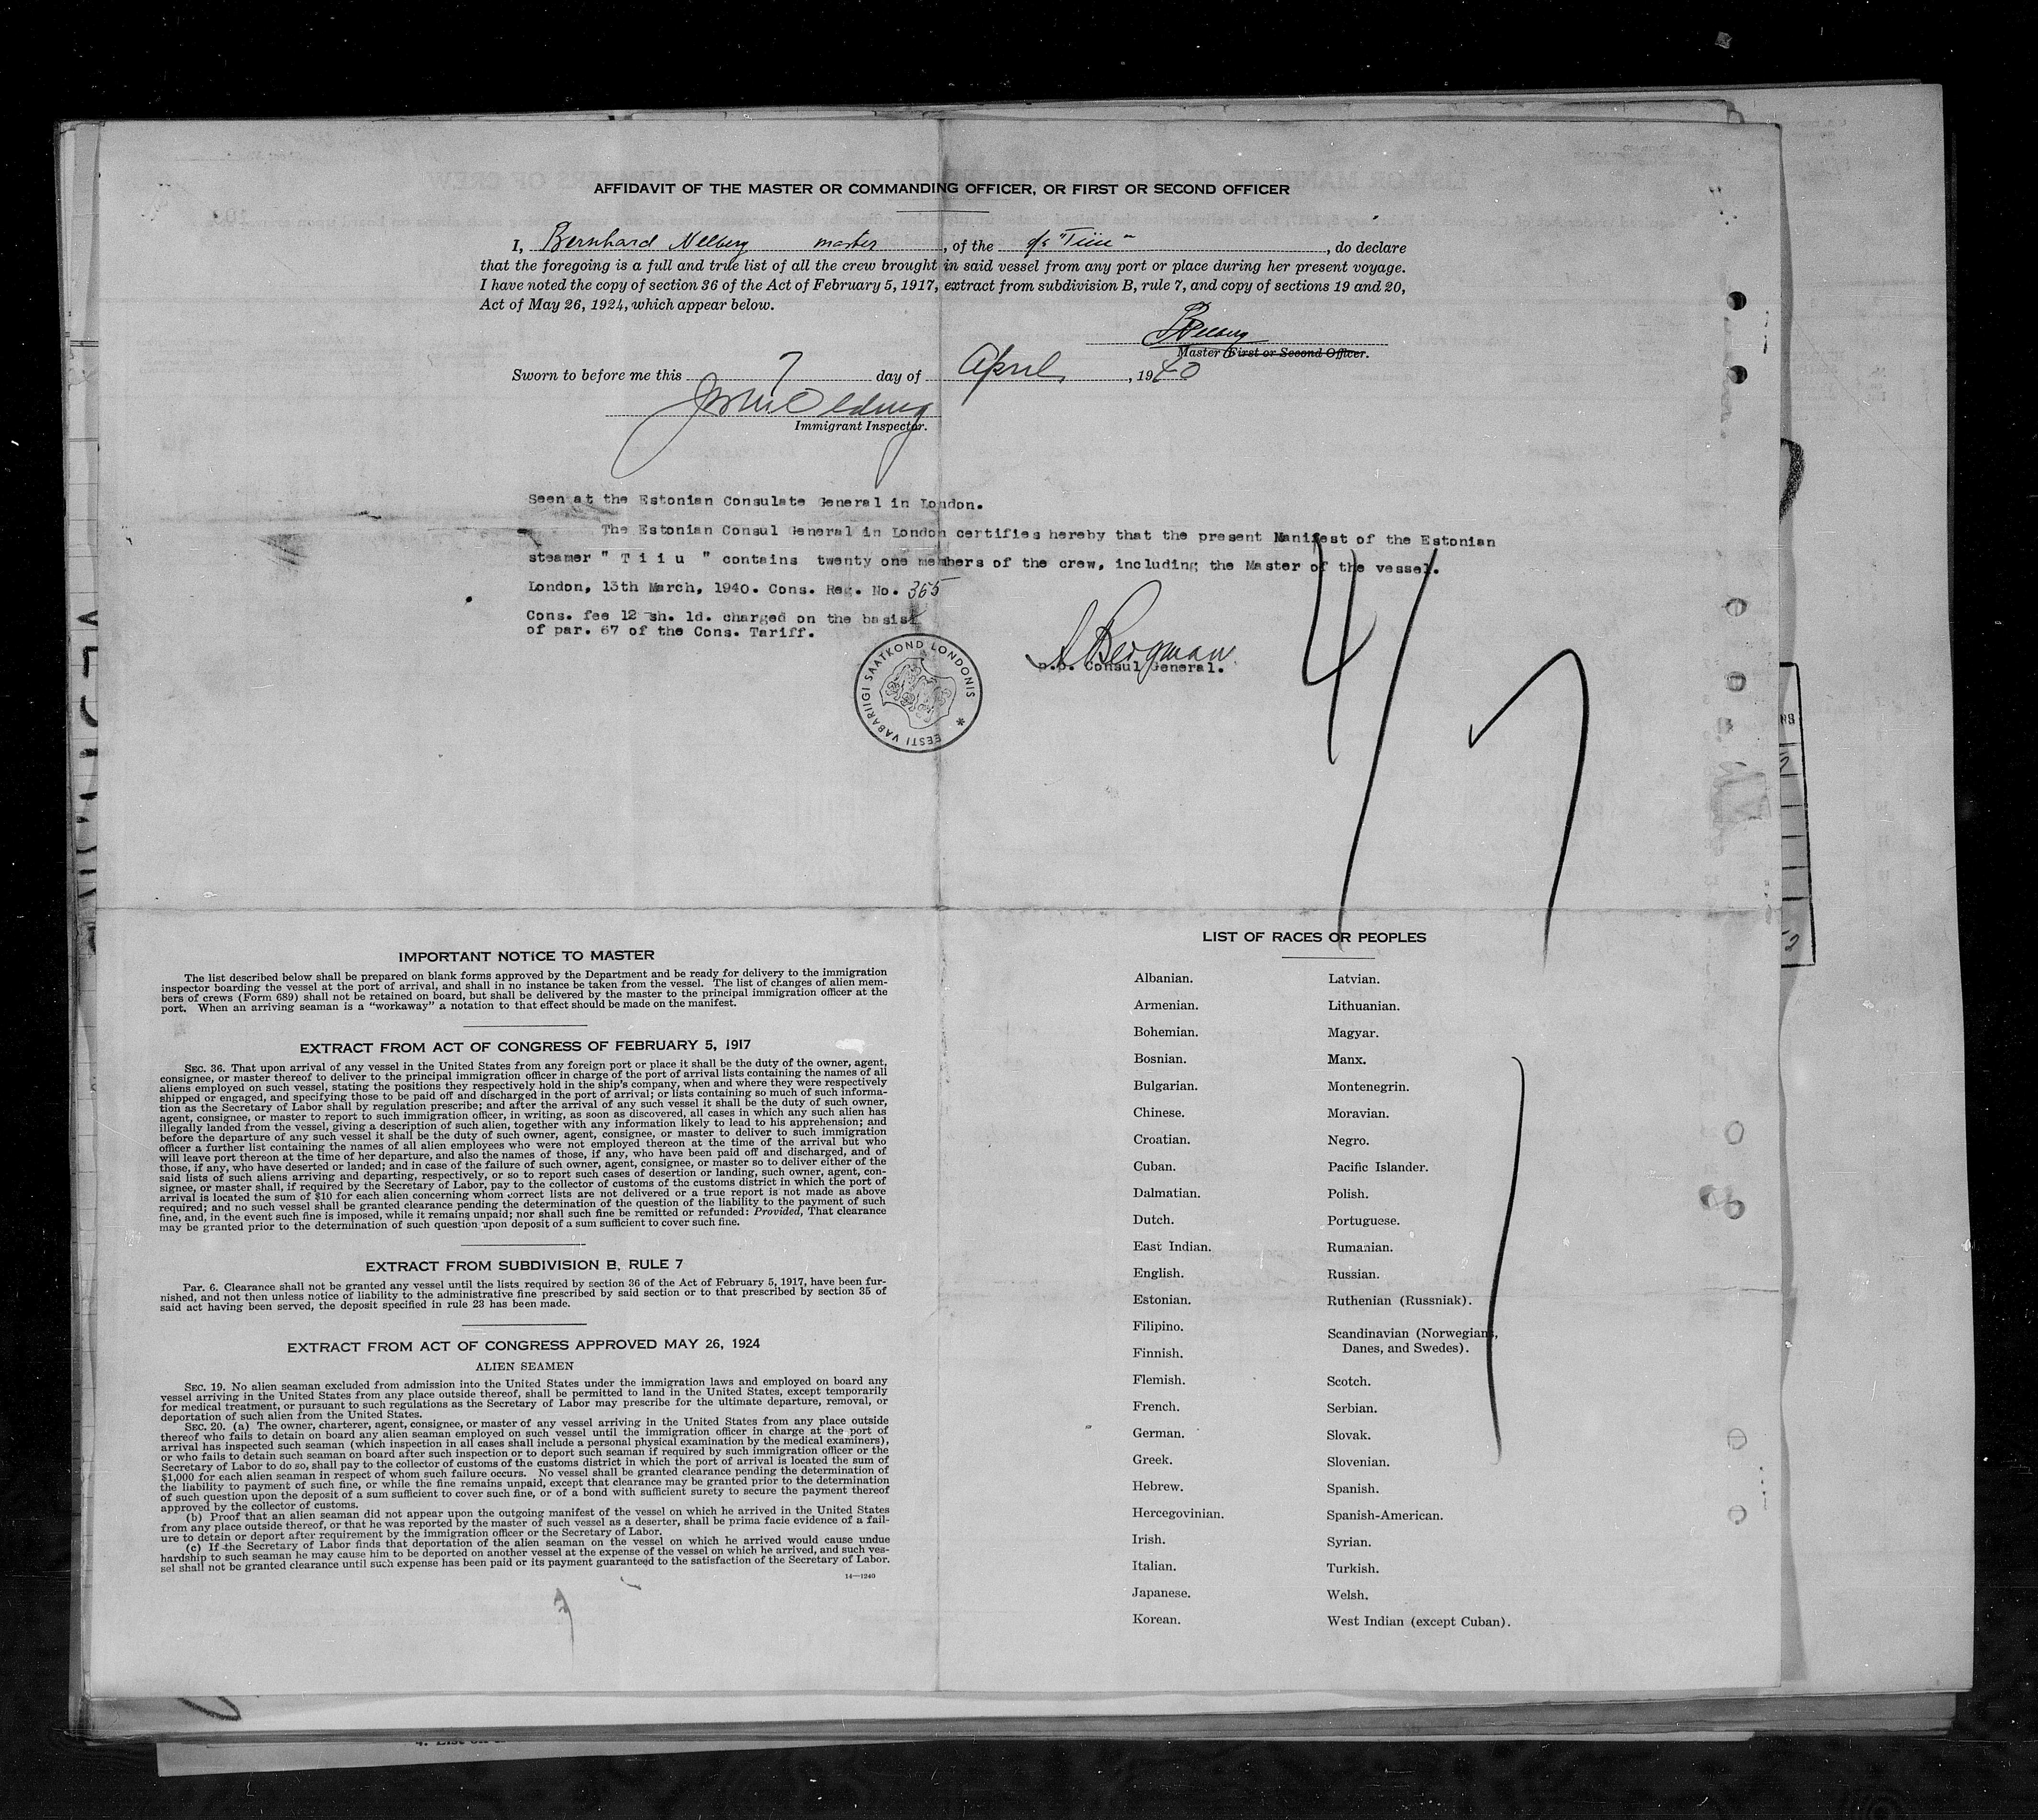 AFFIDAVIT OF THE MASTER OR COMMANDING OFFICER, OR FIRST OR SECOND OFFICER
I, Bernhard Nelberg master, of the s/s "Tiiu", do declare
that the foregoing is a full and true list of all the crew brought in said vessel from any port or place during her present voyage.
I have noted the copy of section 36 of the Act of February 5, 1917, extract from subdivision B, rule 7, and copy of sections 19 and 20,
Act of May 26, 1924, which appear below.
Master First or Second Officer.
Sworn to before me this 7 day of April, 1940
Immigrant Inspector.
Seen at the Estonian Consulate General in London.
The Estonian Consul General in London certifies hereby that the present Manifest of the Estonian
steamer " T i i u " contains twenty one members of the crew, including the Master of the vessel.
London, 13th March, 1940. Cons. Reg. No. 365
Cons. fee 12 sh. 1d. charged on the basis
of par. 67 of the Cons. Tariff.
EESTI VABARIIGI SAATKOND LONDONIS *
A Bergman
p.o. Consul General.
4/7
IMPORTANT NOTICE TO MASTER
The list described below shall be prepared on blank forms approved by the Department and be ready for delivery to the immigration
inspector boarding the vessel at the port of arrival, and shall in no instance be taken from the vessel. The list of changes of alien mem-
bers of crews (Form 689) shall not be retained on board, but shall be delivered by the master to the principal immigration officer at the
port. When an arriving seaman is a "workaway" a notation to that effect should be made on the manifest.
EXTRACT FROM ACT OF CONGRESS OF FEBRUARY 5, 1917
SEC. 36. That upon arrival of any vessel in the United States from any foreign port or place it shall be the duty of the owner, agent,
consignee, or master thereof to deliver to the principal immigration officer in charge of the port of arrival lists containing the names of all
aliens employed on such vessel, stating the positions they respectively hold in the ship's company, when and where they were respectively
shipped or engaged, and specifying those to be paid off and discharged in the port of arrival; or lists containing so much of such informa-
tion as the Secretary of Labor shall by regulation prescribe; and after the arrival of any such vessel it shall be the duty of such owner,
agent, consignee, or master to report to such immigration officer, in writing, as soon as discovered, all cases in which any such alien has
illegally landed from the vessel, giving a description of such alien, together with any information likely to lead to his apprehension; and
before the departure of any such vessel it shall be the duty of such owner, agent, consignee, or master to deliver to such immigration
officer a further list containing the names of all alien employees who were not employed thereon at the time of the arrival but who
will leave port thereon at the time of her departure, and also the names of those, if any, who have been paid off and discharged, and of
those, if any, who have deserted or landed; and in case of the failure of such owner, agent, consignee, or master so to deliver either of the
said lists of such aliens arriving and departing, respectively, or so to report such cases of desertion or landing, such owner, agent, con-
signee, or master shall, if required by the Secretary of Labor, pay to the collector of customs of the customs district in which the port of
arrival is located the sum of $10 for each alien concerning whom correct lists are not delivered or a true report is not made as above
required; and no such vessel shall be granted clearance pending the determination of the question of the liability to the payment of such
fine, and, in the event such fine is imposed, while it remains unpaid; nor shall such fine be remitted or refunded: Provided, That clearance
may be granted prior to the determination of such question upon deposit of a sum sufficient to cover such fine.
EXTRACT FROM SUBDIVISION B, RULE 7
Par. 6. Clearance shall not be granted any vessel until the lists required by section 36 of the Act of February 5, 1917, have been fur-
nished, and not then unless notice of liability to the administrative fine prescribed by said section or to that prescribed by section 35 of
said act having been served, the deposit specified in rule 23 has been made.
EXTRACT FROM ACT OF CONGRESS APPROVED MAY 26, 1924
ALIEN SEAMEN
SEC. 19. No alien seaman excluded from admission into the United States under the immigration laws and employed on board any
vessel arriving in the United States from any place outside thereof, shall be permitted to land in the United States, except temporarily
for medical treatment, or pursuant to such regulations as the Secretary of Labor may prescribe for the ultimate departure, removal, or
deportation of such alien from the United States.
SEC. 20. (a) The owner, charterer, agent, consignee, or master of any vessel arriving in the United States from any place outside
thereof who fails to detain on board any alien seaman employed on such vessel until the immigration officer in charge at the port of
arrival has inspected such seaman (which inspection in all cases shall include a personal physical examination by the medical examiners),
or who fails to detain such seaman on board after such inspection or to deport such seaman if required by such immigration officer or the
Secretary of Labor to do so, shall pay to the collector of customs of the customs district in which the port of arrival is located the sum of
$1,000 for each alien seaman in respect of whom such failure occurs. No vessel shall be granted clearance pending the determination of
the liability to payment of such fine, or while the fine remains unpaid, except that clearance may be granted prior to the determination
of such question upon the deposit of a sum sufficient to cover such fine, or of a bond with sufficient surety to secure the payment thereof
approved by the collector of customs.
(b) Proof that an alien seaman did not appear upon the outgoing manifest of the vessel on which he arrived in the United States
from any place outside thereof, or that he was reported by the master of such vessel as a deserter, shall be prima facie evidence of a fail-
ure to detain or deport after requirement by the immigration officer or the Secretary of Labor.
(c) If the Secretary of Labor finds that deportation of the alien seaman on the vessel on which he arrived would cause undue
hardship to such seaman he may cause him to be deported on another vessel at the expense of the vessel on which he arrived, and such ves-
sel shall not be granted clearance until such expense has been paid or its payment guaranteed to the satisfaction of the Secretary of Labor.
14—1240
LIST OF RACES OR PEOPLES
Albanian.
Armenian.
Bohemian.
Bosnian.
Bulgarian.
Chinese.
Croatian.
Cuban.
Dalmatian.
Dutch.
East Indian.
English.
Estonian.
Filipino.
Finnish.
Flemish.
French.
German.
Greek.
Hebrew.
Hercegovinian.
Irish.
Italian.
Japanese.
Korean.
Latvian.
Lithuanian.
Magyar.
Manx.
Montenegrin.
Moravian.
Negro.
Pacific Islander.
Polish.
Portuguese.
Rumanian.
Russian.
Ruthenian (Russniak).
Scandinavian (Norwegians,
Danes, and Swedes).
Scotch.
Serbian.
Slovak.
Slovenian.
Spanish.
Spanish-American.
Syrian.
Turkish.
Welsh.
West Indian (except Cuban).